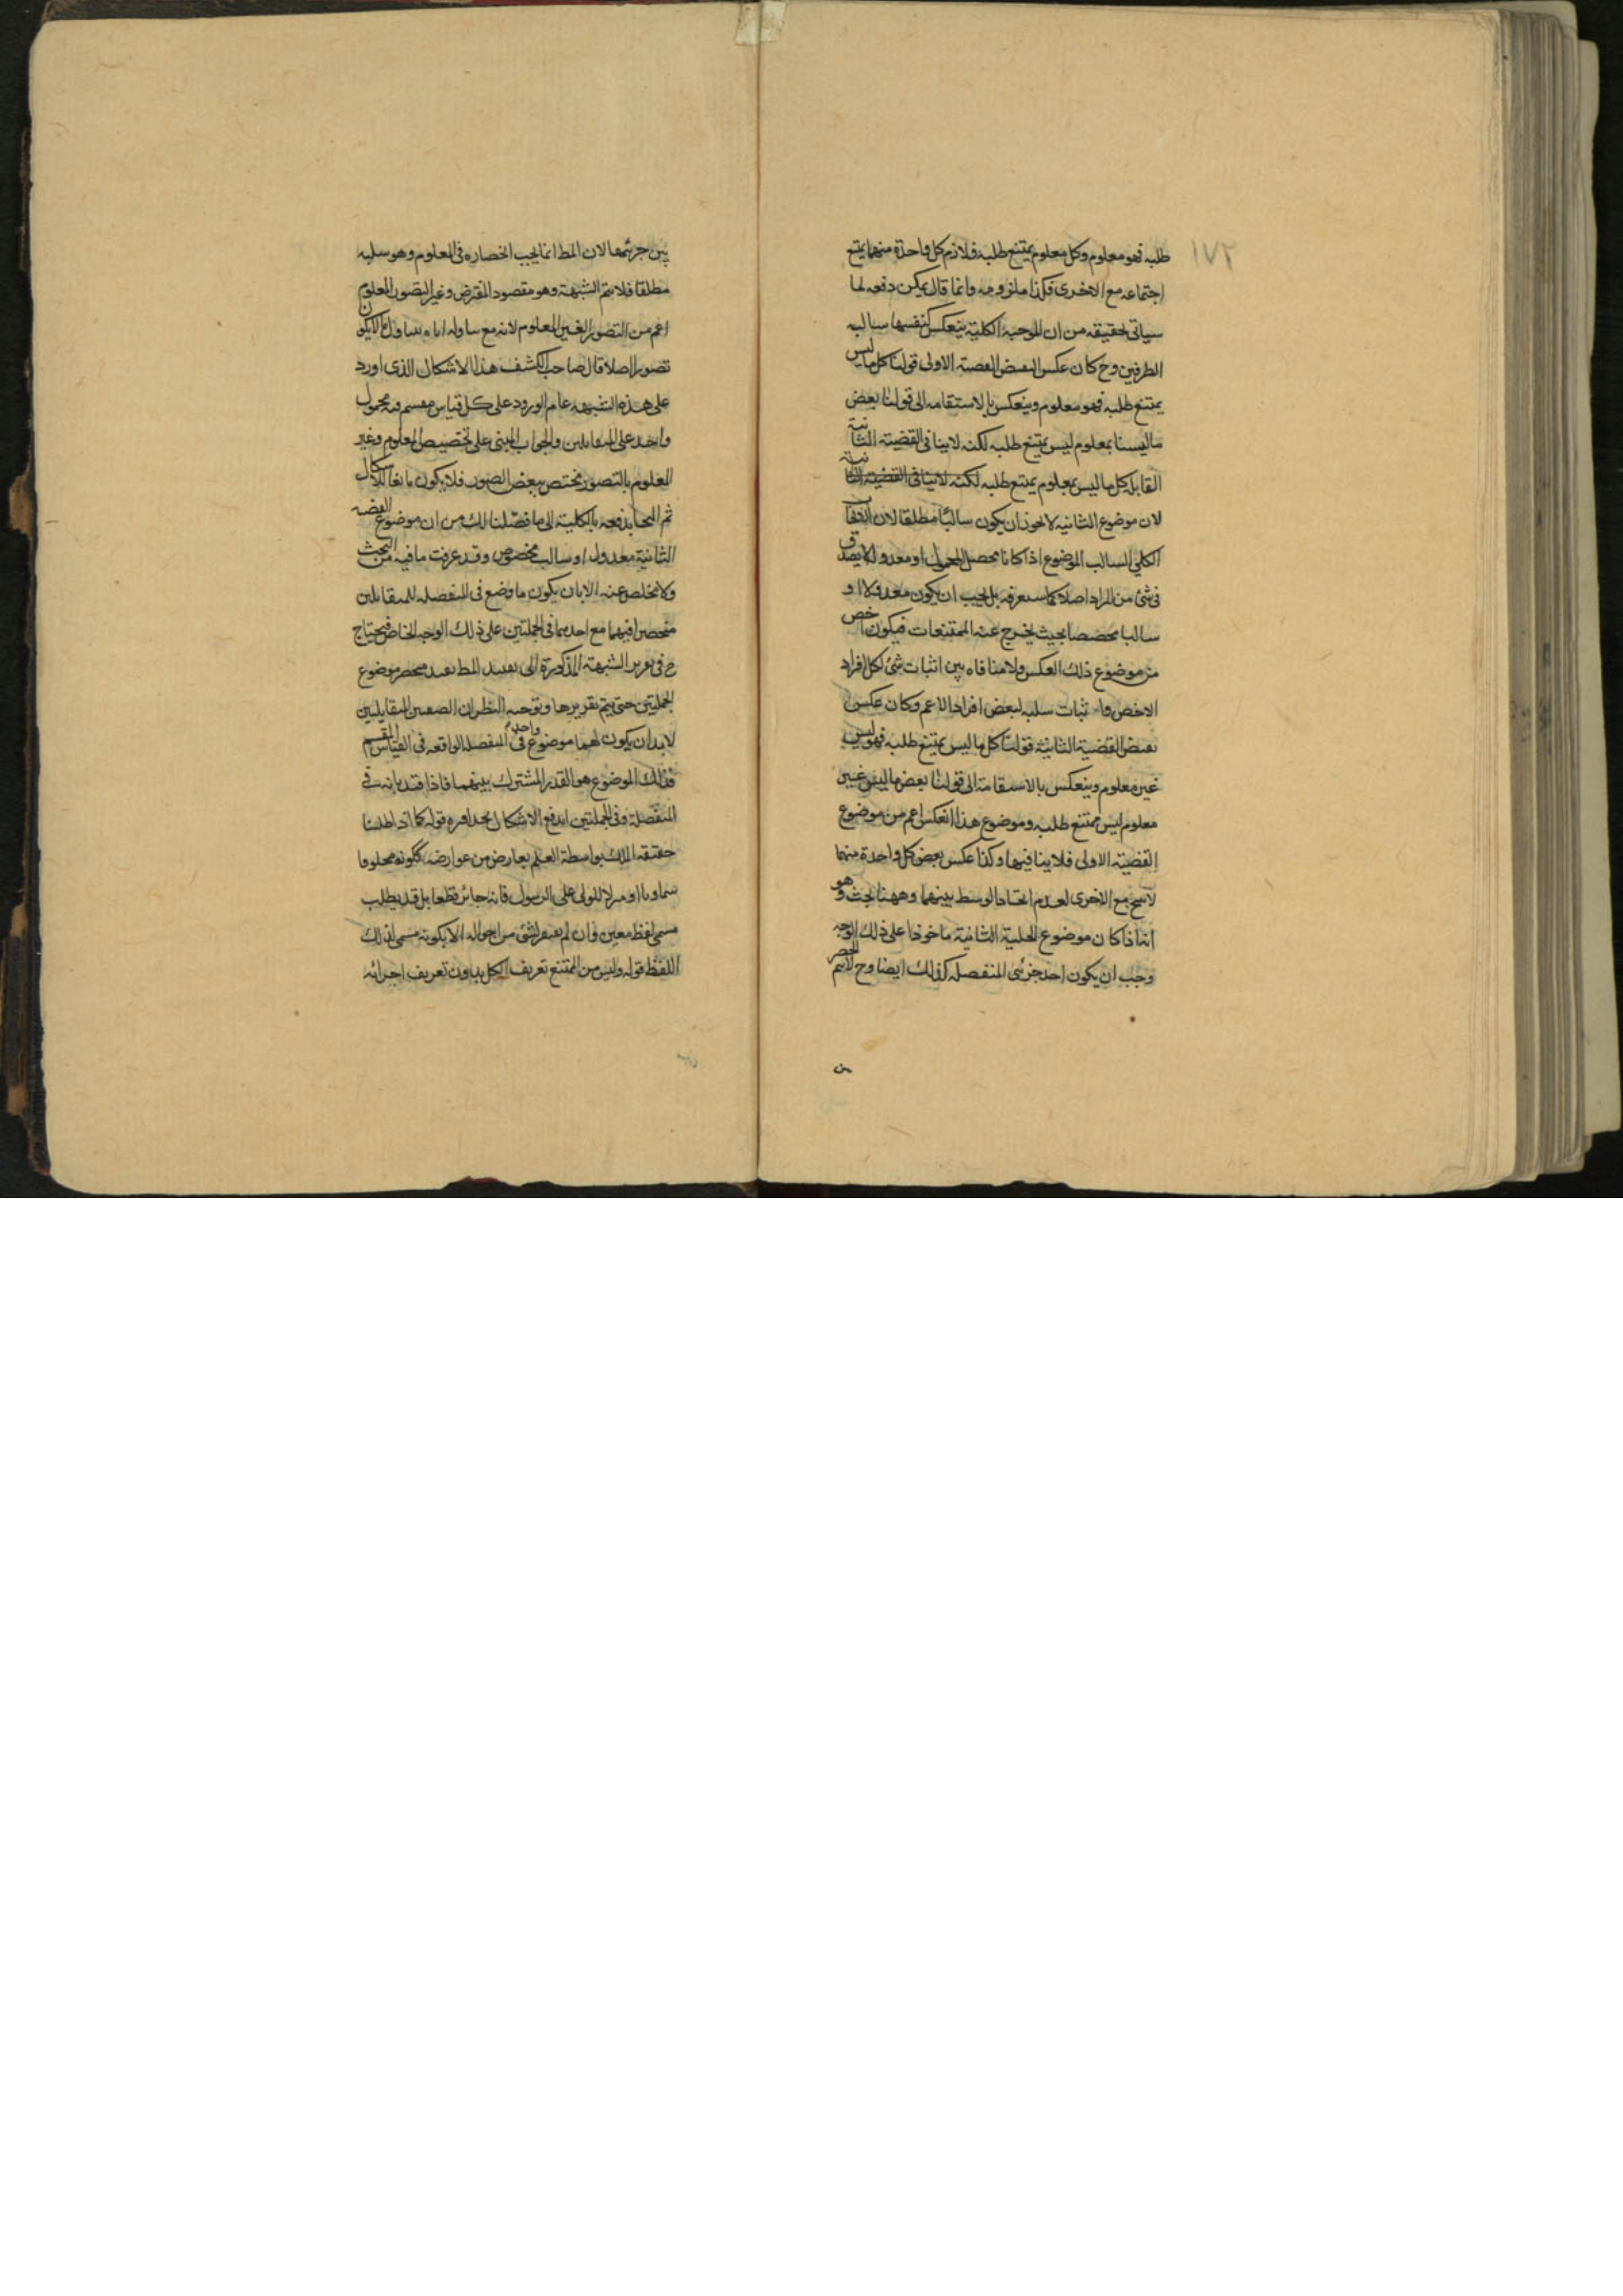 ١٧٢
طلبه فهو معلوم وكل معلوم يمتنع طلبه فلازم كل واحدة منهما يمتنع
اجتماعه مع الاخرى فكذا ملزومه وانما قال يمكن دفعه لما
سياتى تحقيقه من ان الموجبه الكلية ينعكس كنفسها سالبه
الطرفين وح كان عكس النقيض القضية الاولى قولنا كل ما ليس
يمتنع طلبه فهو معلوم وينعكس بالاستقامه الى قولنا بعض
ما ليس بمعلوم ليس يمتنع طلبه لكنه لا ينافى القضية الثانية
القابله كل ما ليس بمعلوم يمتنع طلبه لكنه لا ينافى القضية الثانية
لان موضوع الثانيه لا يجوز ان يكون سالبًا مطلقا لان
الكلي السالب الموضوع اذا كانا محصل المحمول او معدولا لا يصدق
فى شئ من المراد اصلا كما ستعرفه بل يجب ان يكون معدولا او
سالبا مخصصا بحيث يخرج عنه الممتنعات فيكون اخص
من موضوع ذلك العكس ولا منافاه بين اثبات شئ لكل افراد
الاخص واثبات سلبه لبعض افراد الاعم وكان عكس
نقيض القضية الثانية قولنا كل ما ليس يمتنع طلبه فهو ليس
غير معلوم وينعكس بالاستقامة الى قولنا بعض ما ليس غير
معلوم ليس يمتنع طلبه وموضوع هذا العكس اعم من موضوع
القضية الاولى فلا ينافيها وكذا عكس بعض كل واحدة منهما
لا ينتج مع الاخرى لعدم اتحاد الوسط بينهما وههنا بحث وهو
انه اذا كان موضوع الحملية الثانية ماخوذا على ذلك الوجه
وجب ان يكون احد جزئى المنفصله كذلك ايضا وح لا يتم الحصر
بين جزئيها لان المط انما يجب انحصاره فى المعلوم وهو سلبه
مطلقا فلا يتم الشبهة وهو مقصود المعترض وغير التصور المعلوم
اعم من التصور الغير المعلوم لانه مع تناوله اياه يتناول ما لا يكون
تصورا اصلا قال صاحب الكشف هذا الاشكال الذى اورد
على هذه الشبهه عام الورود على كل قياس مقسم فيه محمول
واحد على المتقابلين والجواب المبنى على تخصيص المعلوم وغير
المعلوم بالتصور مختص ببعض الصور فلا يكون مانعا للاشكال
ثم التجا بدفعه بالكلية الى ما فصّلنا لك من ان موضوع القضيه
الثانية معدول او سالب مخصوص وقد عرفت ما فيه من البحث
ولا مخلص عنه الا بان يكون ما وضع فى المنفصله للمتقابلين
منحصرا فيهما مع احديهما فى الحمليتين على ذلك الوجه الخاص فيحتاج
ح فى تقرير الشبهة المذكورة الى تقييد المط بقيد منحصر موضوع
الحمليتين حتى يتم تقريرها وتوجيه النظر ان الضعيفين المتقابلين
لابد ان يكون لهما موضوع واحد فى المنفصله الواقعه فى القياس المقسم
فذلك الموضوع هو القدر المشترك بينهما فاذا قيد بانه فى
المنفصلة وفى الحمليتين اندفع الاشكال بحذافره قوله كما اذا طلبنا
حقيقه الملك بواسطة العلم بعارض من عوارضه ككونه مخلوقا
سماويا او منزلا للوحى على الرسول فانه جائز قطعا بل قد يطلب
مسمى لفظ معين وان لم يعرف شئ من احواله الا بكونه مسمى لذلك
اللفظ قوله وليس من الممتنع تعريف الكل بدون تعريف اجزائه